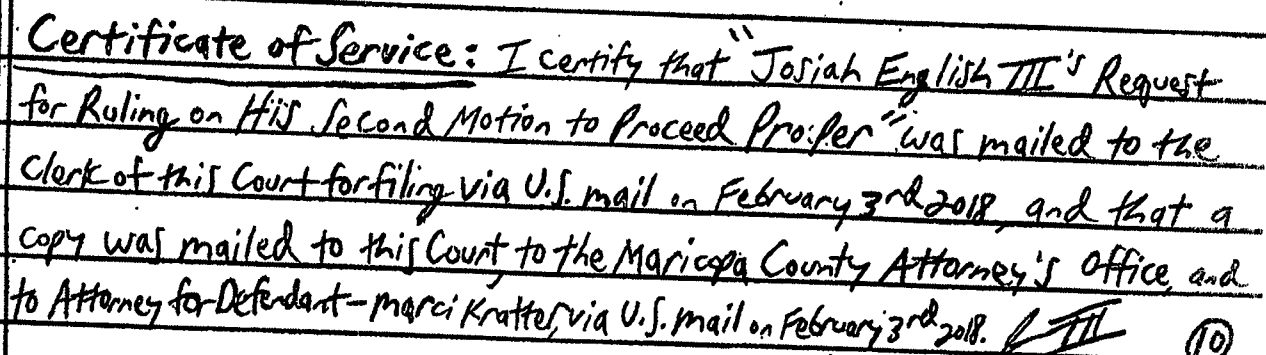 Certificate of Service: I certify that "Josiah English III's Request
for Ruling on His Second Motion to Proceed Pro:Per" was mailed to the
Clerk of this Court for filing via U.S. mail on February 3rd 2018, and that a
copy was mailed to this Court, to the Maricopa County Attorney's Office, and
to Attorney for Defendant-Marci Kratter, via U.S. mail on February 3rd 2018. III 10